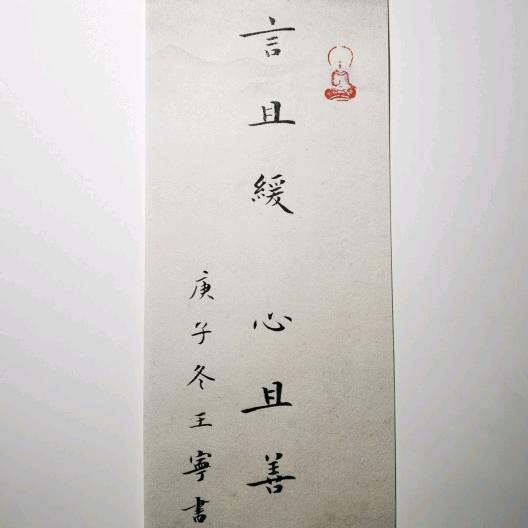 言且緩 心且善
庚子冬王寧書